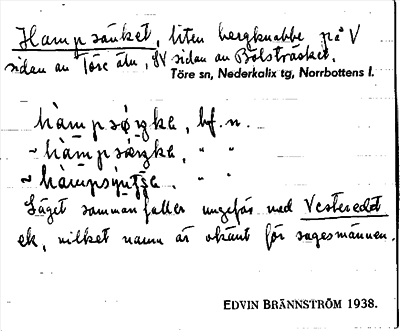 Hampsänket, liten bergknabbe på V
sidan av Töre älv, SV sidan av Bölsträsket.
Töre sn, Nederkalix tg, Norrbottens l.
hàmpsøŋke, bf. n.
~ hàmpsæŋke, " "
~ hàmpsyntse, " "
Läget sammanfaller ungefär med Vesteredet
ek, vilket namn är okänt för sagesmannen.
EDVIN BRÄNNSTRÖM 1938.